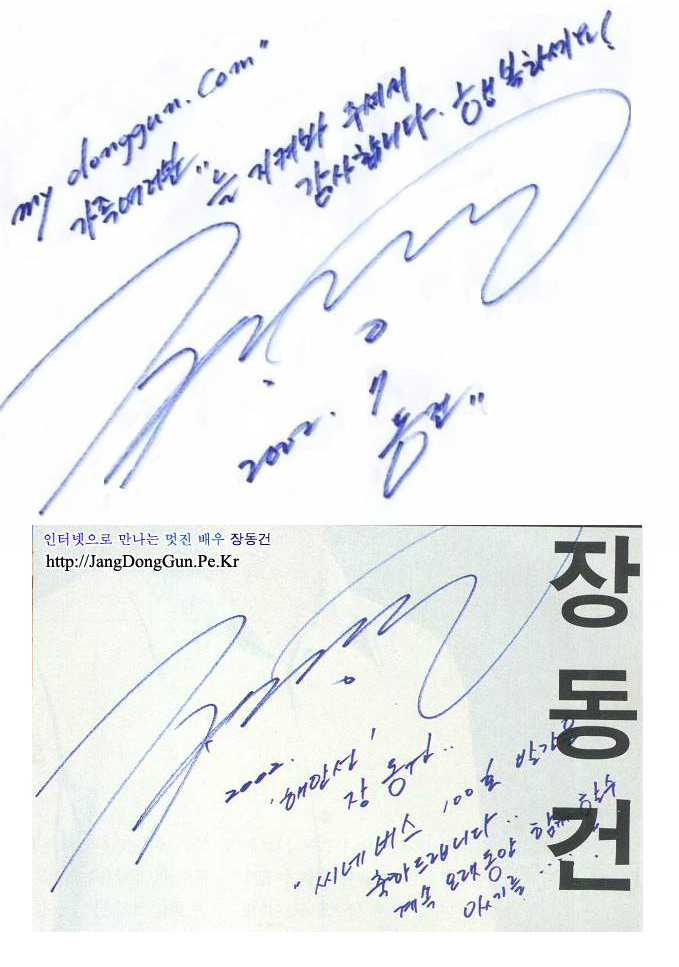 my donggun.com"
가족여러분.. 늘 지켜봐 주셔서
감사합니다. 행복하세요!
2002. 11
동건"
인터넷으로 만나는 멋진 배우 장동건
http://JangDongGun.Pe.Kr
장동건
2002.
'해안선'
장동건..
"씨네버스 100호 발간을
축하드립니다..
계속 오래동안 함께 할 수
있기를 ....."